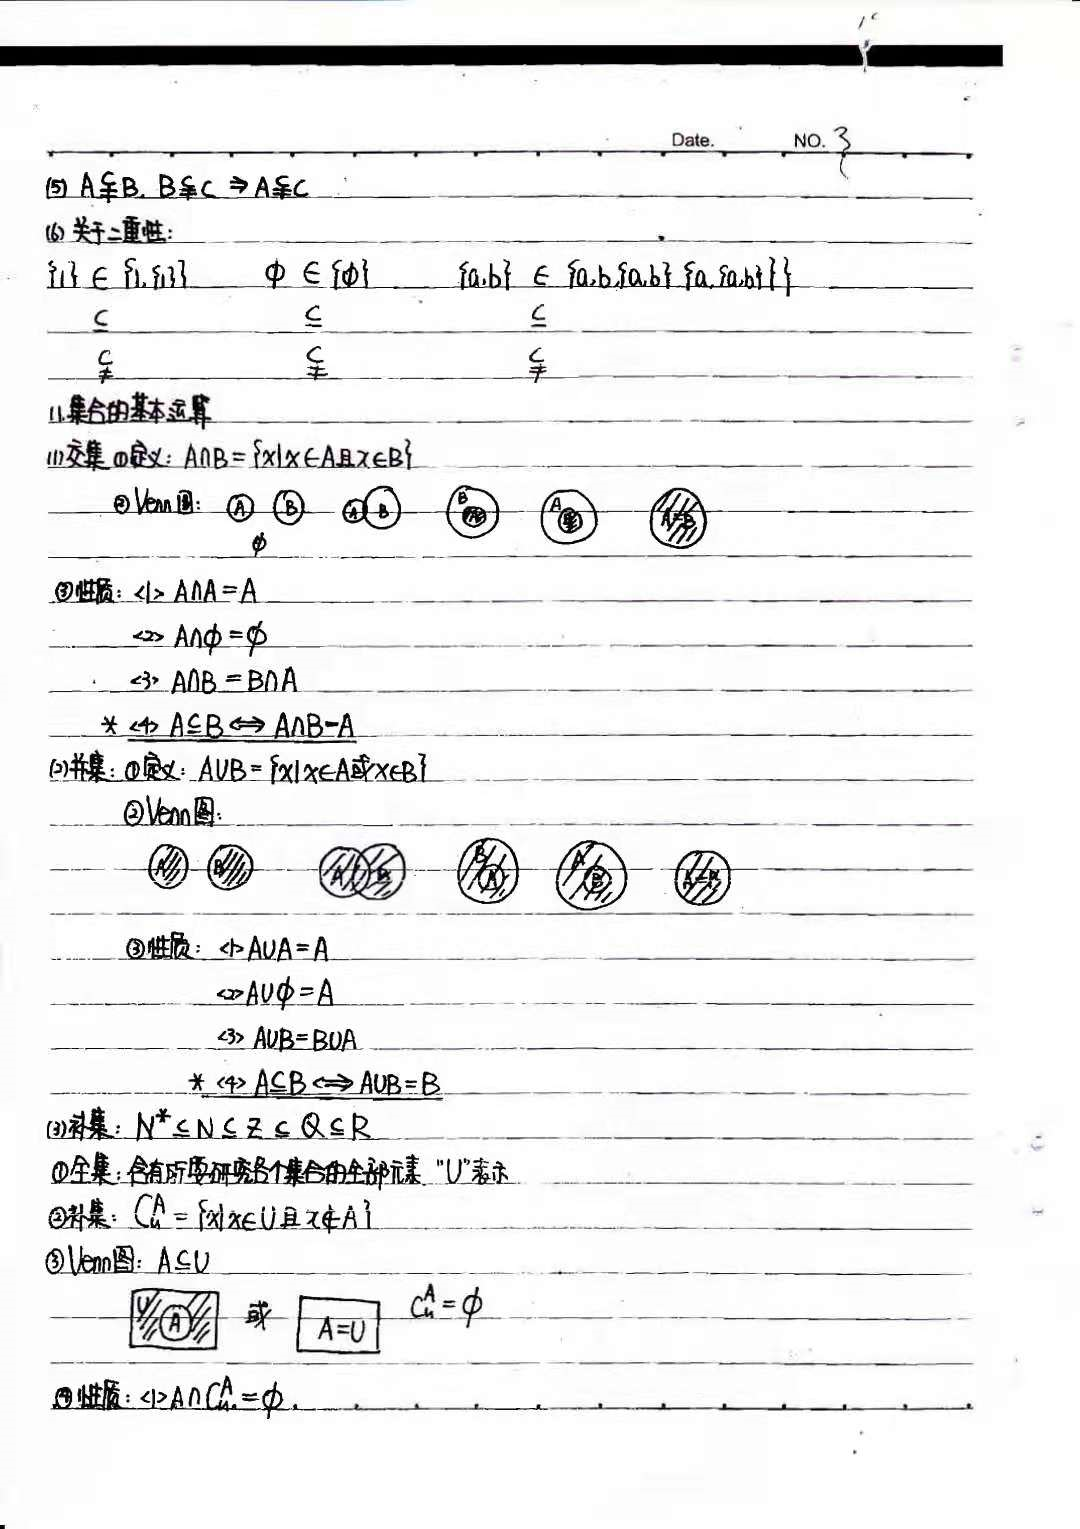 Date. NO. 3
(5) A⫋B. B⫋C ⇒ A⫋C
(6) 关于二重性:
{1} ∈ {1,{1}} ϕ ∈ {ϕ} {a,b} ∈ {a,b,{a,b} {a,{a,b}}}
⊆ ⊆ ⊆
⫋ ⫋ ⫋
11.集合的基本运算
(1)交集 ①定义: A∩B={x|x∈A且x∈B}
②Venn图: A B A B B A A B A=B
ϕ
③性质: <1> A∩A=A
<2> A∩ϕ=ϕ
<3> A∩B=B∩A
* <4> A⊆B⇔A∩B=A
(2)并集: ①定义: A∪B={x|x∈A或x∈B}
②Venn图:
A B A B B A A B A=B
③性质: <1>A∪A=A
<2>A∪ϕ=A
<3> A∪B=B∪A
* <4> A⊆B⇔A∪B=B
(3)补集: N*⊆N⊆Z⊆Q⊆R
①全集:含有所要研究各个集合的全部元素 "U"表示
②补集: CᵤA={x|x∈U且x∉A}
③Venn图: A⊆U
U A 或 A=U CᵤA=ϕ
④性质: <1>A∩CᵤA=ϕ